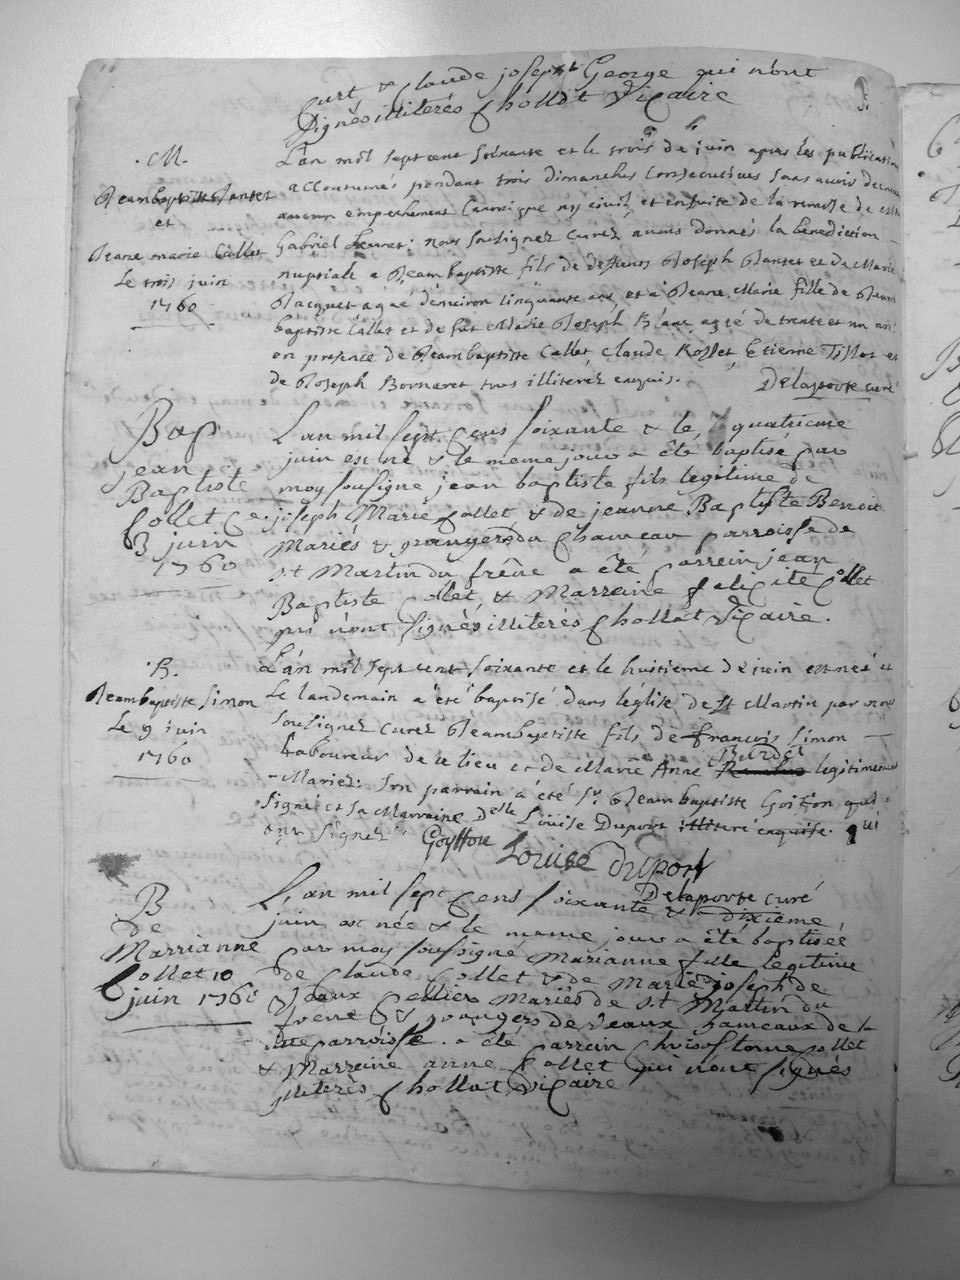 Curt & Claude joseph George qui n'ont
signés illiterés Chollat Vicaire
.M.
Jeambaptiste Jantet
et
Jeane marie Callet
Le trois juin
1760
L'an mil sept cent soixante et le trois de juin apres les publications
accoutumés pendant trois dimanches consecutives sans avoir decouvert
aucun empechement canonique ny civil, et ensuite de la remise de
Gabriel nous soussignez curez avons donnés la benediction
nuptiale a Jeambaptiste fils de deffunts Joseph Jantet et de Marie
Jacquet agé d'environ cinquante ans et a Jeane Marie fille de Jeam
baptiste Callet et de fut Marie Joseph Blanc, agée de trente et un ans
en presence de Jeambaptiste Callet, Claude Rosset, Etienne Tissot et
de Joseph Bornaret tous illiterez enquis.
Delaporte curé
Bap
jean
Baptiste
Collet ce
3 juin
1760
L'an mil sept cens soixante & le quatrieme
juin est né & le meme jour a été baptisé par
moy soussigné jean baptiste fils legitime de
joseph Marie Collet & de jeanne Baptiste Benoit
Mariés & grangers du Chameau parroisse de
st Martin du frêne a été parrein jean
Baptiste Collet & Marreine felicité Collet
qui n'ont signés illiterés Chollat Vicaire.
.B.
Jeambaptiste Simon
Le 9 juin
1760
L'an mil sept cent soixante et le huitieme de juin est né et
le landemain a été baptisé dans leglise de st Martin par nous
soussignez curez Jeambaptiste fils de francois Simon
Laboureur de ce lieu et de Marie Anne Burdet legitimement
Mariez. Son parrain a été sr. Jeam baptiste Goiffon qui
signé et sa Marraine delle Louise Duport illiteré enquise. qui
signez Goyffon Louise duport
Delaporte curé
B
de
Marrianne
Collet 10
juin 1760
L'an mil sept cens soixante & dixieme
juin est née & le meme jour a été baptisée
par moy soussigné Marianne fille legitime
de Claude Collet & de Marie joseph de
Vaux Cellier Mariés de st Martin du
frene & grangers de Veaux hameaux de la
ditte parroisse. a été parrein Chrisostome Collet
& Marreine anne Collet qui n'ont signés
illiterés Chollat Vicaire